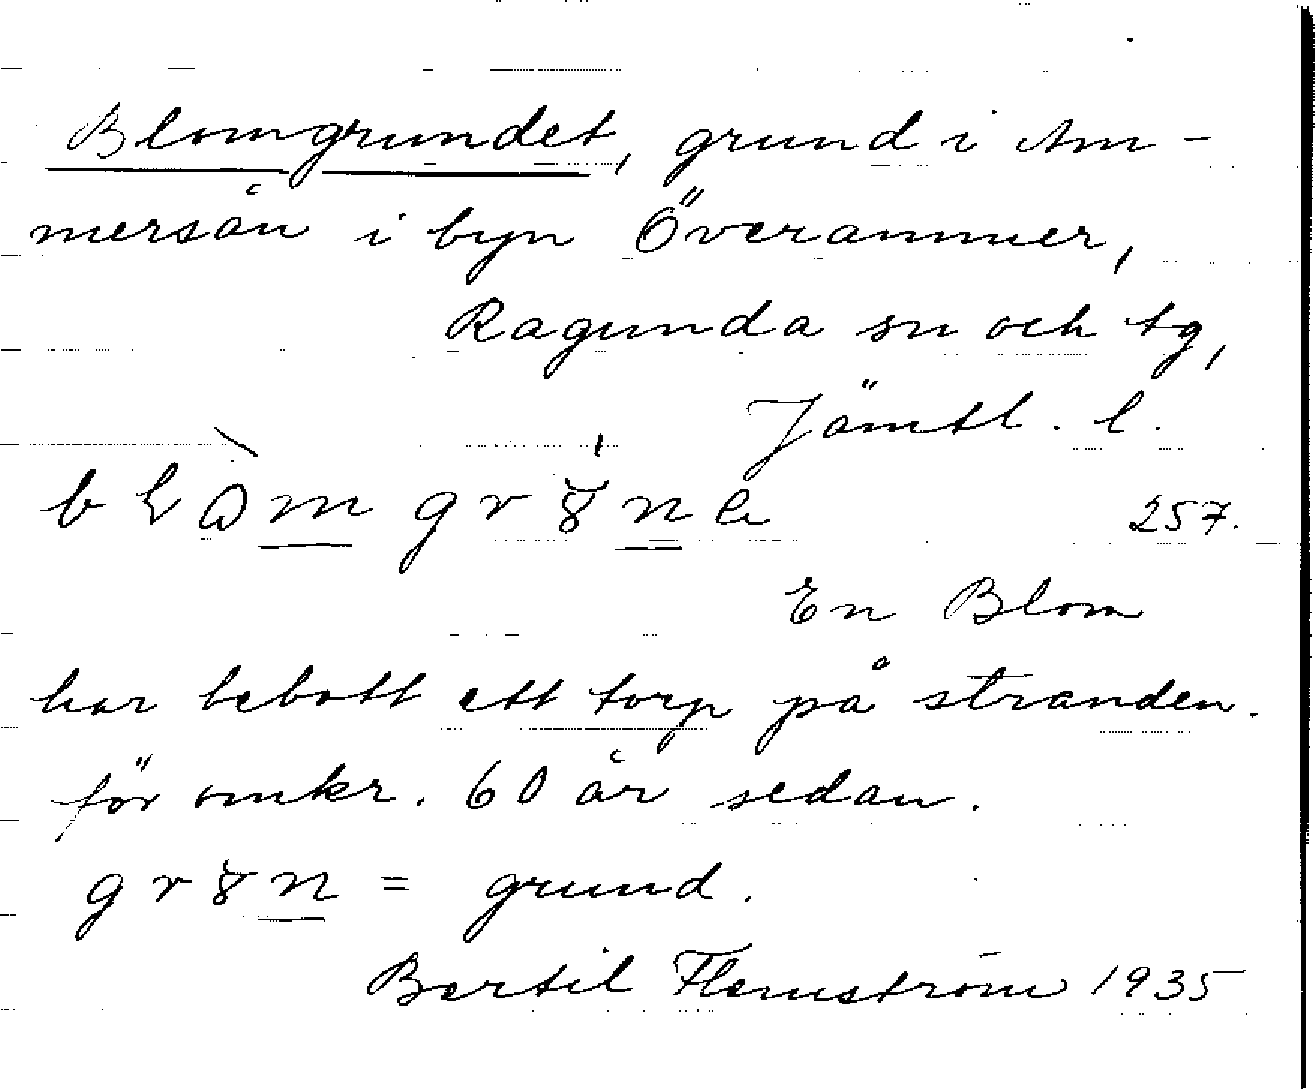 Blomgrundet, grund i Am-
mersån i byn Överammer,
Ragunda sn och tg,
Jämtl. l.
257.
En Blom
har bebott ett torp på stranden.
för omkr. 60 år sedan.
= grund.
Bertil Flemström 1935